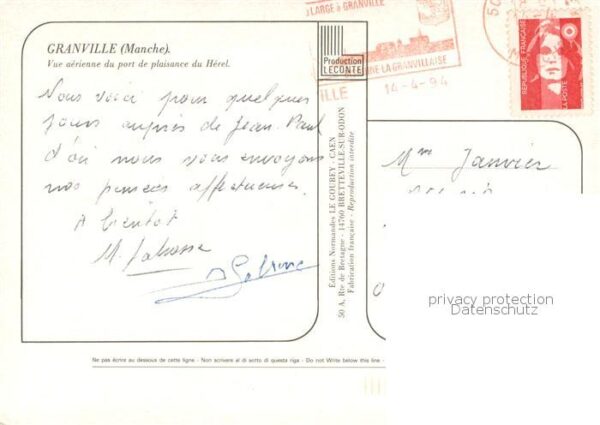 GRANVILLE (Manche).
Vue aérienne du port de plaisance du Hérel.
Nous voici pour quelques
jours auprès de Jean-Paul
d'où nous vous envoyons
nos pensées affectueuses.
A bientôt
M.
Production
LECONTE
Editions Normandes LE GOUBEY - CAEN
50 A, Rte de Bretagne - 14760 BRETTEVILLE-SUR-ODON
Fabrication française - Reproduction interdite
LARGE à GRANVILLE
LA GRANVILLAISE
14-4-94
VILLE
50
REPUBLIQUE FRANÇAISE
LA POSTE
Mme Janvier
privacy protection
Datenschutz
Ne pas écrire au dessous de cette ligne - Non scrivere al di sotto di questa riga - Do not Write below this line -